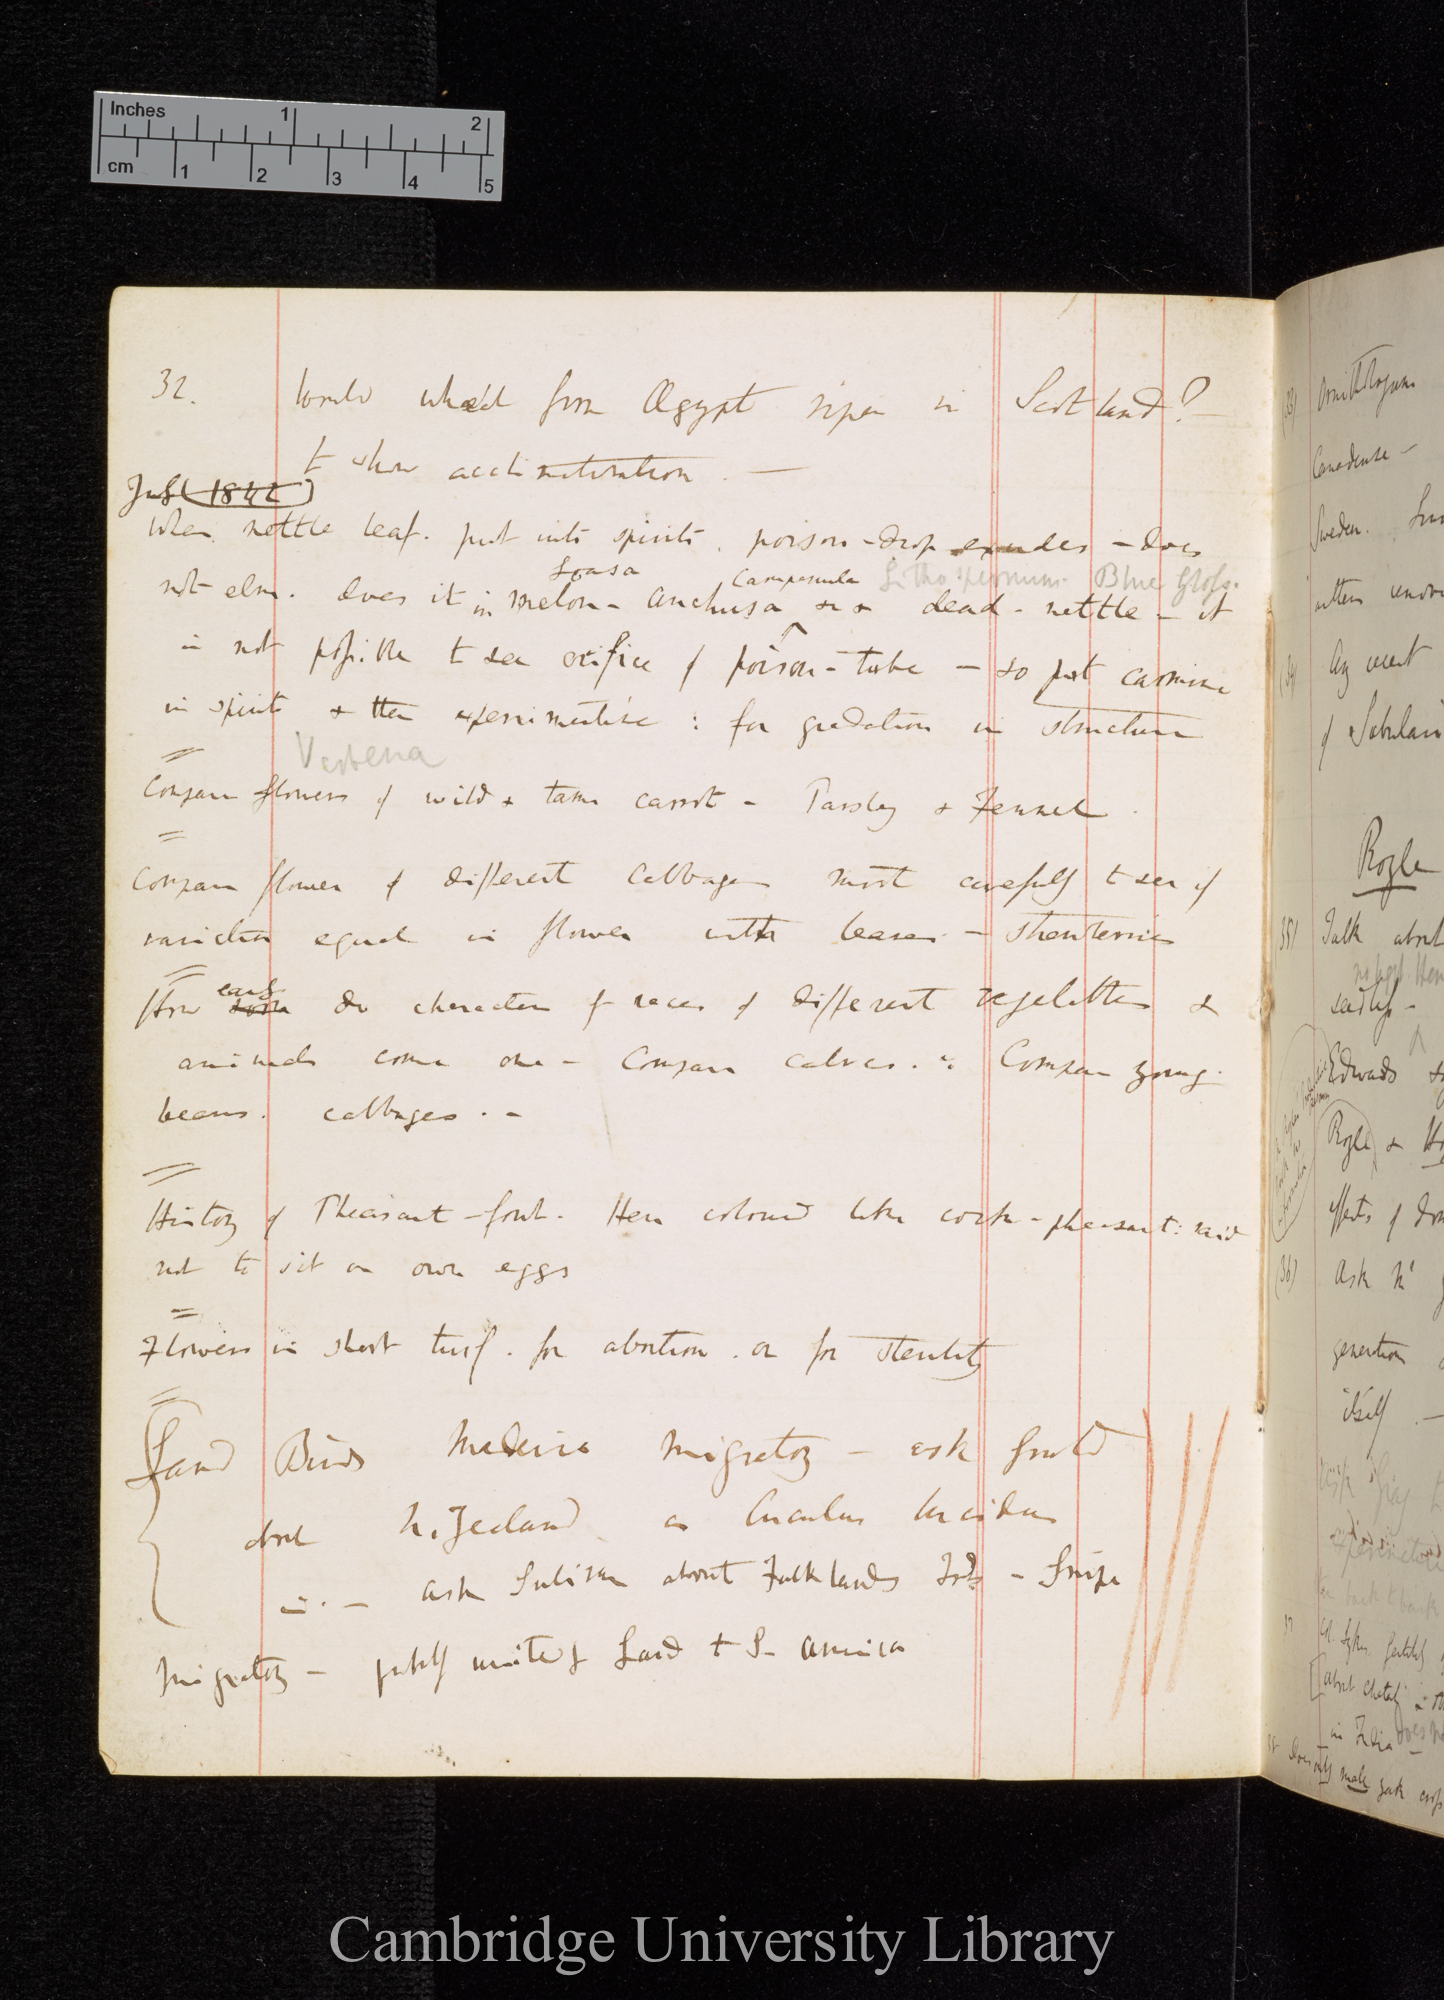 Inches 1 2
cm 1 2 3 4 5
32. Would wheat from Ægypt ripen in Scotland? —
to show acclimatization. —
July (1842)
When nettle leaf. put into spirits. poison-drop exudes — does
Loasa Campanula Lithospermum Blue Gloss.
not elm. does it in melon — Anchusa &c &c dead-nettle — it
is not possible to see orifice of poison-tube — so put carmine
in spirits & then experimentise: for gradation in structure
Verbena
Compare flowers of wild & tame carrot — Parsley & Fennel.
Compare flower of different Cabbages most carefully to see if
varieties equal in flower with leaves —
early
How soon do characters of races of different vegetables &
animals come on — Compare calves. — Compare young.
beans. cabbages. —
History of Pheasant-fowl. Hen coloured like cock-pheasant: said
not to sit on own eggs
Flowers in short turf. for abortion. or for sterility
Land Birds Madeira migratory — ask Gould
about N. Zealand as Cuculus lucidus
is. — ask Sulivan about Falklands Isds — Snipe
migratory — probably united Land to S. America
(33) Ornithogum
Canadense —
Sweden.
(34) Any recent
of Subulari
Royle
(35) Talk about
Edwards
Royle &
effects of dom
(36) Ask Mr
generation
itself. —
37
about cheetah
in India does no
male
Cambridge University Library